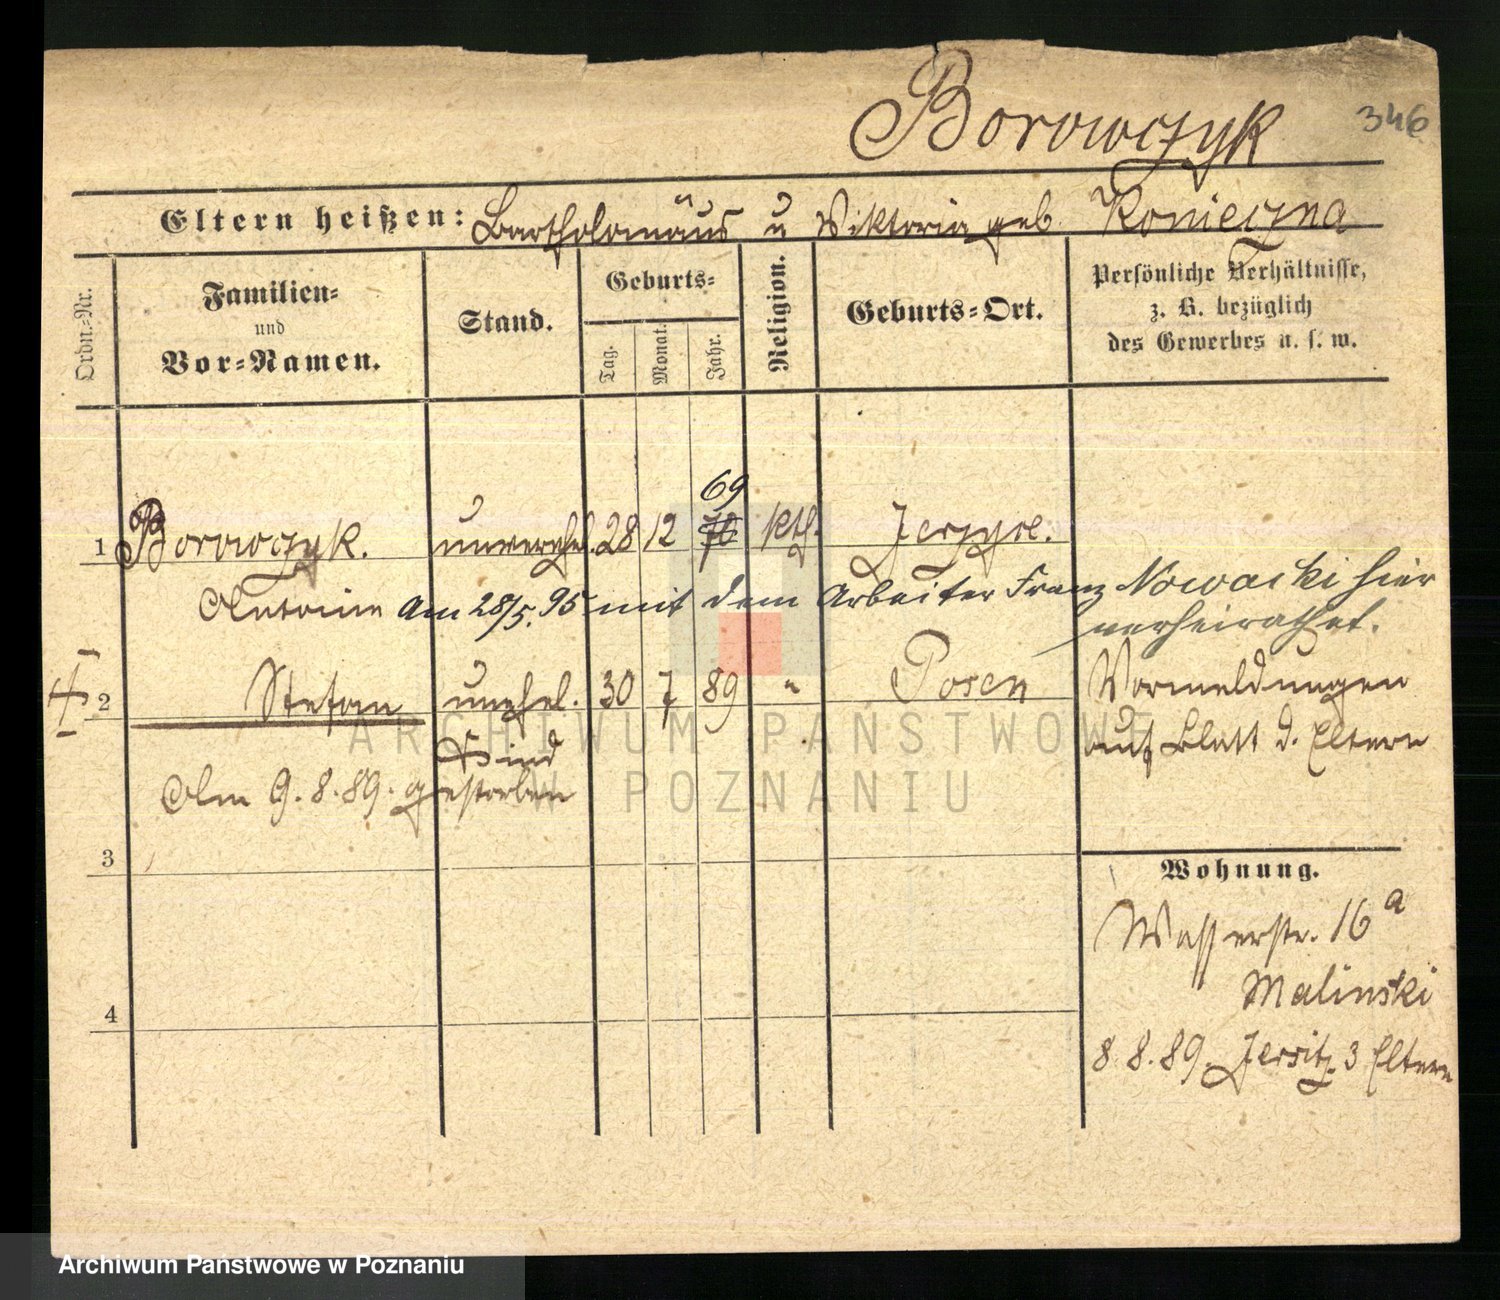 Borowczyk 346
Eltern heißen: Bartholomäus u Viktoria geb. Konieczna
Ordn.-Nr.
Familien-
und
Vor-Namen.
Stand.
Geburts-
Tag.
Monat.
Jahr.
Religion.
Geburts-Ort.
Persönliche Verhältnisse,
z. B. bezüglich
des Gewerbes u. s. w.
69
1 Borowczyk. unverehel. 28 12 70 kth.
Antonie Am 28/5. 95 mit dem Arbeiter Franz Nowacki hier
verheirathet.
2 Stefan unehel. 30 7 89 " Posen
Kind
Am 9.8.89. gestorben
Vormeldungen
auf Blatt d. Eltern
3
4
Wohnung.
Wasserstr. 16a
Malinski
8.8.89. Jersitz 3 Eltern
ARCHIWUM PAŃSTWOWE
W POZNANIU
Archiwum Państwowe w Poznaniu